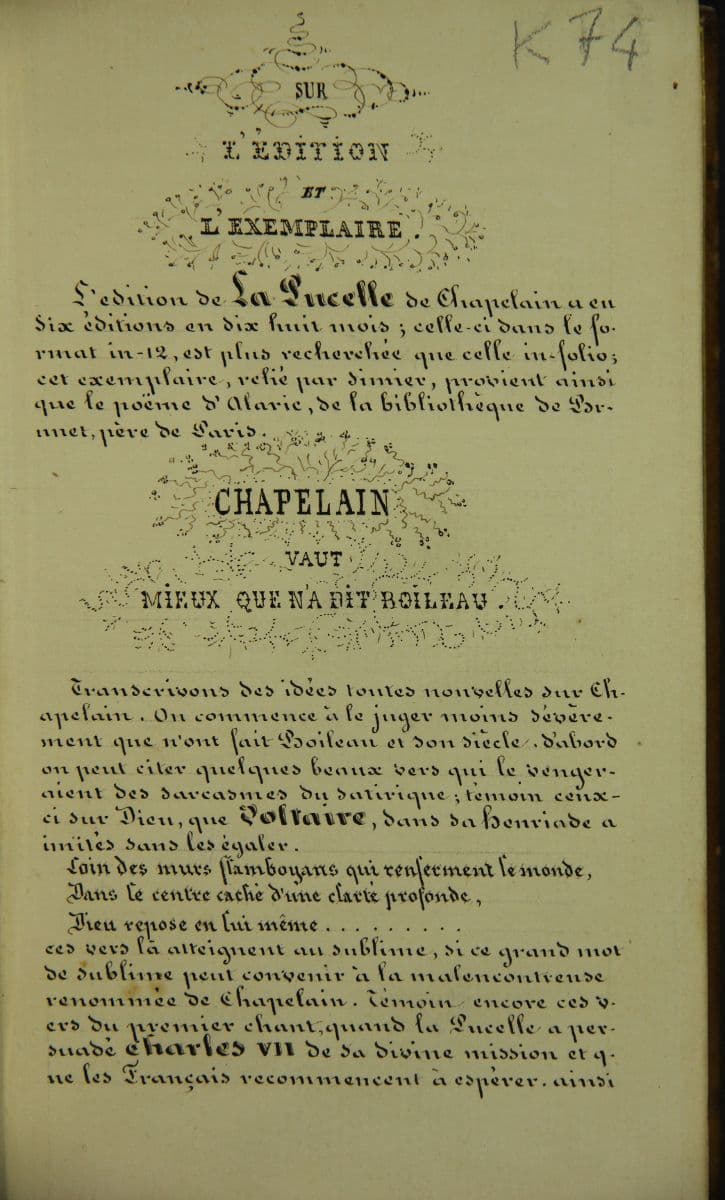 K 74
SUR
L'ÉDITION
ET
L'EXEMPLAIRE.
L'édition de La Pucelle de Chapelain a eu
six éditions en dix huit mois ; celle-ci dans le fo-
rmat in-12, est plus recherchée que celle in-folio ;
cet exemplaire, relié par Simier, provient ainsi
que le poëme d'Alaric, de la bibliothèque de Br-
unet, père de Paris.
CHAPELAIN
VAUT
MIEUX QUE N'A DIT BOILEAU.
Transcrivons des idées toutes nouvelles sur Ch-
apelain. On commence à le juger moins sévère-
ment que n'ont fait Boileau et son siècle. d'abord
on peut citer quelques beaux vers qui le venger-
aient des sarcasmes du satirique ; témoin ceux-
ci sur Dieu, que Voltaire, dans sa henriade a
imités sans les égaler.
Loin des murs flamboyans qui renferment le monde,
Dans le centre caché d'une clarté profonde,
Dieu repose en lui même . . . . . . . . .
ces vers là atteignent au sublime, si ce grand mot
de sublime peut convenir à la malencontreuse
renommée de Chapelain. Témoin encore ces v-
ers du premier chant, quand la Pucelle a per-
suadé Charles VII de sa divine mission et q-
ue les Français recommencent à espérer. ainsi